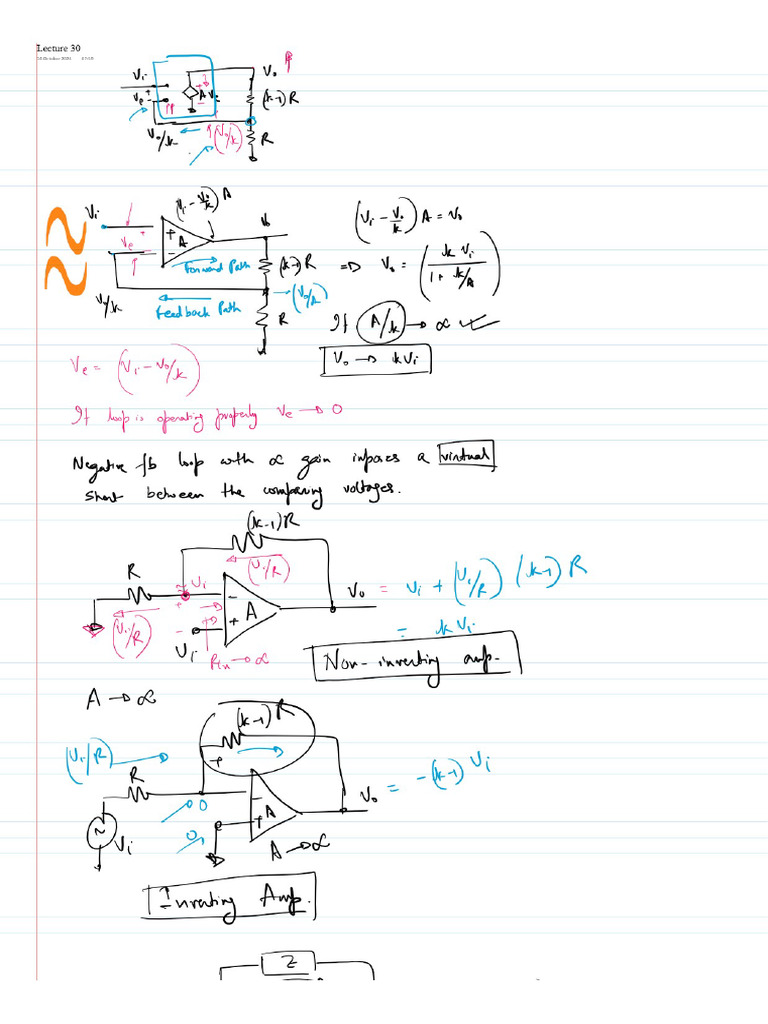 Lecture 30
Vi
Ve
+
-
A Ve
Vo
(k-1)R
R
Vo/k
(Vo/k)
Vi
Ve
+
-
A
(Vi - Vo/k) A
Vo
Forward Path
(k-1)R
(Vo/k)
Vo/k
Feedback Path
R
(Vi - Vo/k) A = Vo
⇒ Vo = (k Vi / (1 + k/A))
If (A/k) → ∝ ✓
Vo → kVi
Ve = (Vi - Vo/k)
If loop is operating properly Ve → 0
Negative fb loop with ∝ gain imposes a virtual
short between the comparing voltages.
(k-1)R
(Vi/R)
R
Vi
-
+
A
Vo = Vi + (Vi/R) (k-1) R
= kVi
(Vi/R)
Vi
Rin → ∝
Non-inverting amp.
A → ∝
(k-1)R
(Vi/R)
R
+
0
-
+
A
Vo = -(k-1) Vi
0
Vi
A → ∝
Inverting Amp.
Z